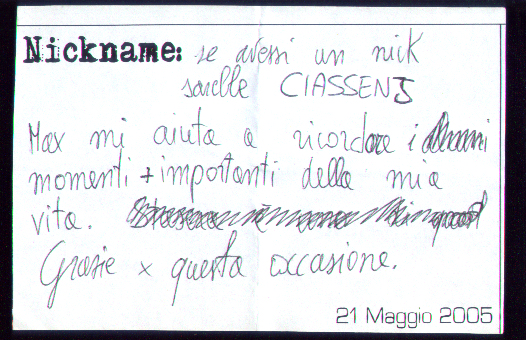 Nickname: se avessi un nick
sarebbe CIASSENS
Max mi aiuta a ricordare i
momenti + importanti della mia
vita.
Grazie x questa occasione.
21 Maggio 2005